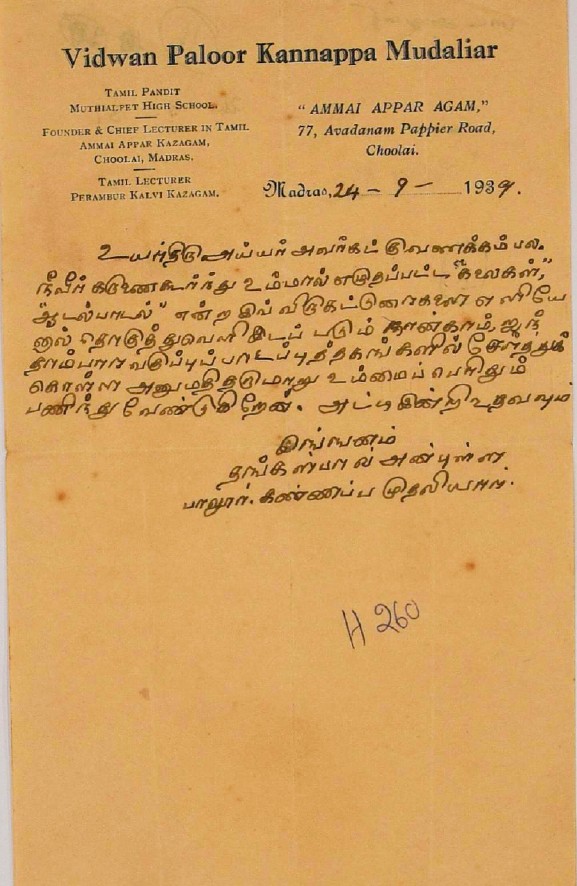 Vidwan Paloor Kannappa Mudaliar
TAMIL PANDIT
MUTHIALPET HIGH SCHOOL.
FOUNDER & CHIEF LECTURER IN TAMIL
AMMAI APPAR KAZAGAM,
CHOOLAI, MADRAS.
TAMIL LECTURER
PERAMBUR KALVI KAZAGAM.
" AMMAI APPAR AGAM,"
77, Avadanam Pappier Road,
Choolai.
Madras, 24 - 9 - 1939.
உயர்திரு அய்யர் அவர்கட்கு வணக்கம் பல.
நீவீர் கருணைகூர்ந்து உம்மால் எழுதப்பட்ட "கலைகள்,"
"ஆடல்பாடல்" என்ற இவ் விரு கட்டுரைகளை எளியே
னால் தொகுத்து வெளியிடப் படும் நான்காம், ஐந்
தாம்பார வகுப்புப் பாடப்புத்தகங்களில் சேர்த்துக்
கொள்ள அனுமதி தருமாறு உம்மைப் பெரிதும்
பணிந்து வேண்டுகிறேன். அட்டியின்றி உதவவும்
இங்ஙனம்
தங்கள்பால் அன்புள்ள
பாலூர். கண்ணப்ப முதலியார்.
H 260